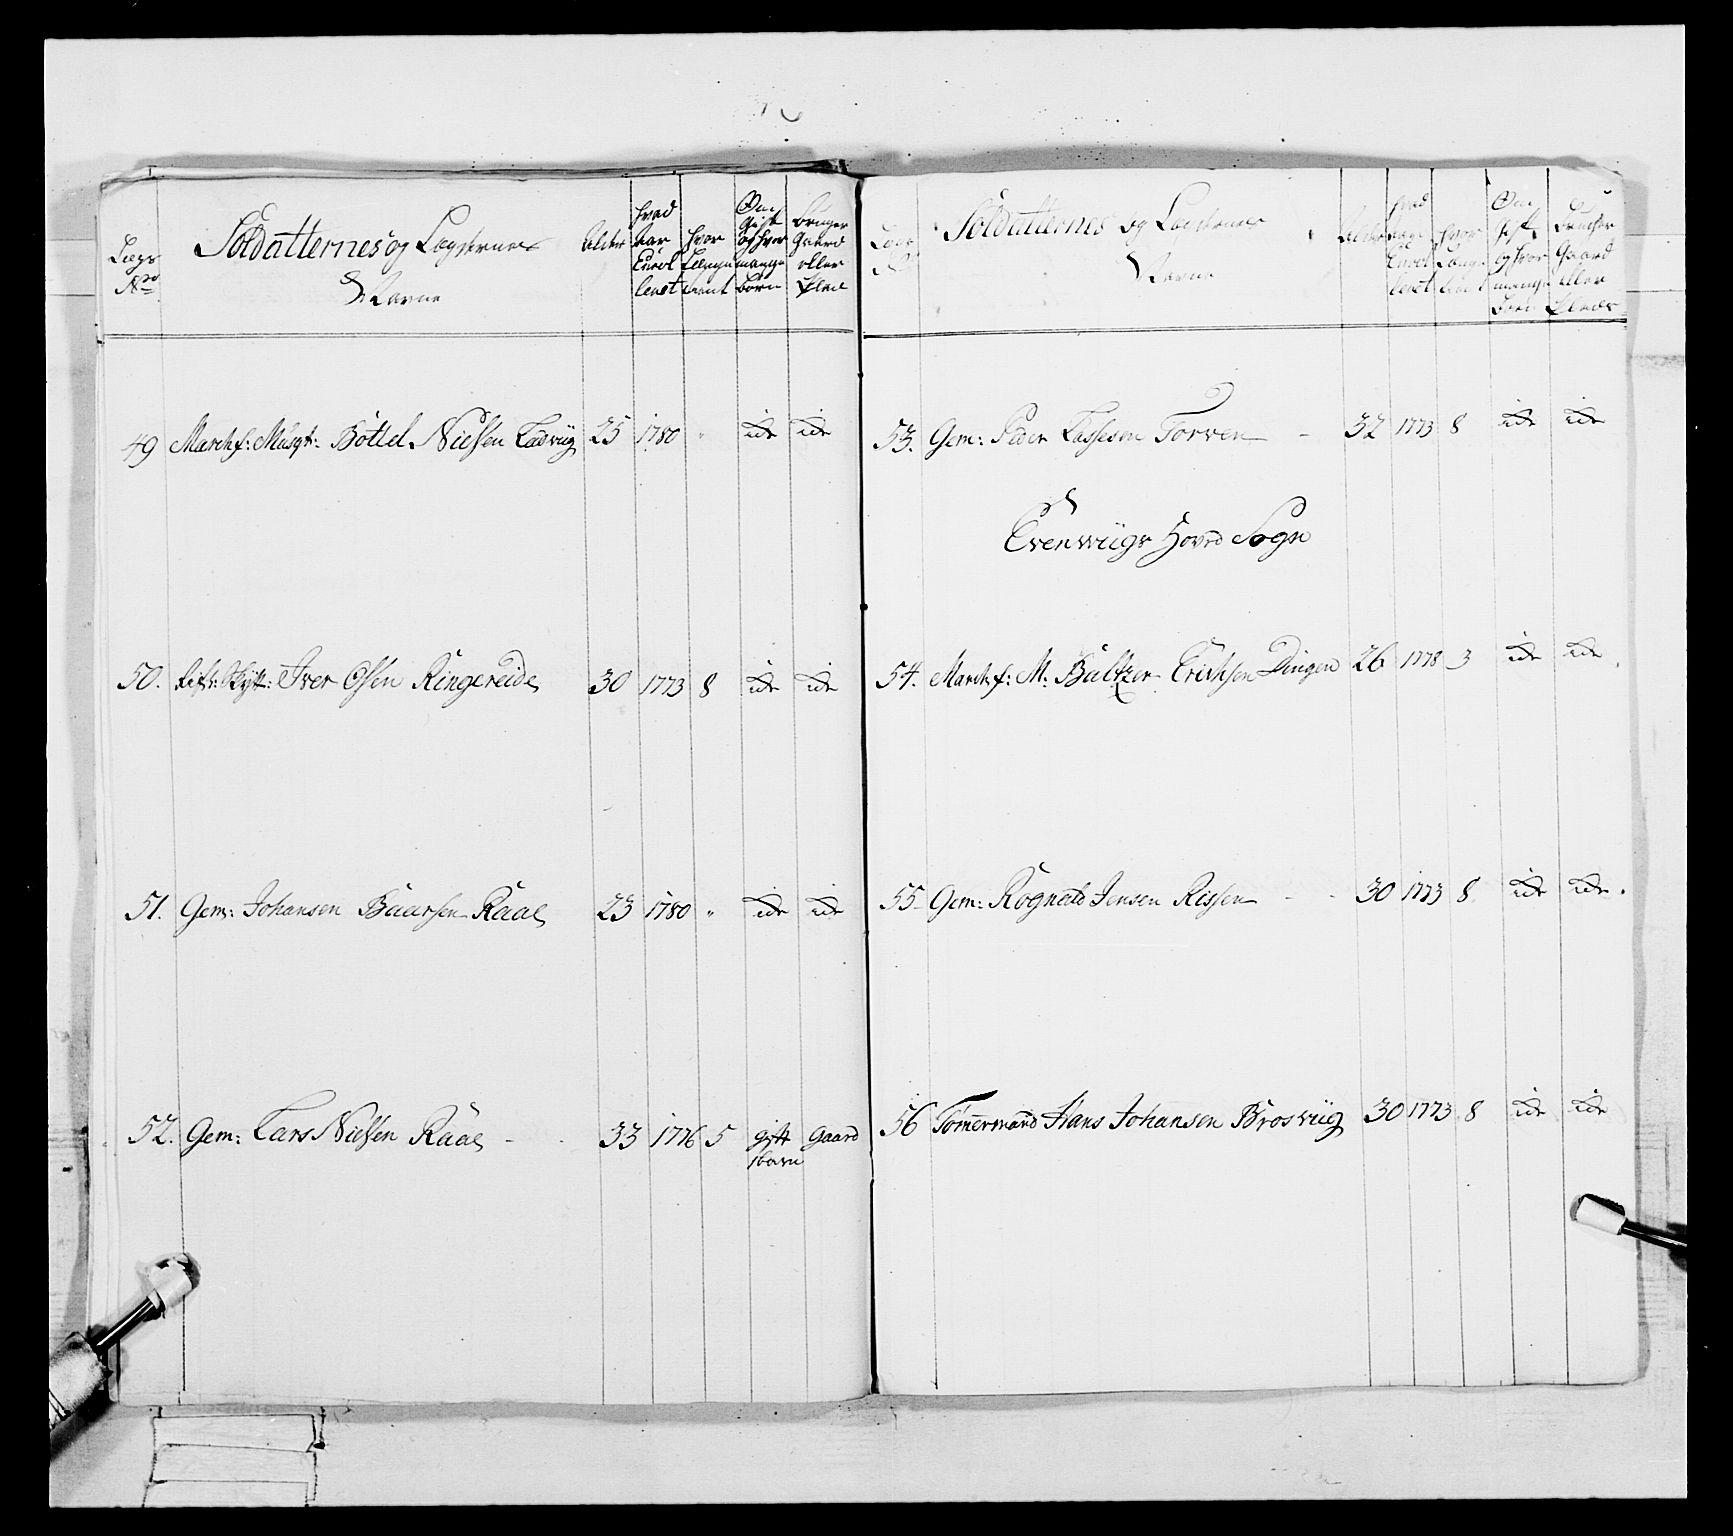 Lægs Soldatternes og Lægdernes Alder hvad Aar Enrol leret hvor Længe tient Om gift og hvor mange Børn bruger Gaard eller Plad
No Navne
49 March f: Musqt: Bottel Nielsen Ladviig 25 1780 " ide ide
50. Rifl: Skytt: Iver Olsen Ringereide 30 1773 8 ide ide
51. Gem: Johansen Baarsen Raae 23 1780 " ide ide
52. Gem: Lars Nielsen Raae - - 33 1776 5 gift Gaard
1 barn
Lægs Soldatternes og Lægdernes Alder hvad Enrol leret hvor Længe Om gift og hvor mange Børn Gaard eller Plads
No Navne
53. Gem: Peder Lassesen Torven - 32 1773 8 ide ide
Evenwiigs Hoved Sogn
54. March f: M: Baltzer Erichsen Dingen 26 1778 3 ide ide
55 Gem: Rognald Jensen Rissen - - 30 1773 8 ide ide
56 Tømermand Hans Johansen Brosviig 30 1773 8 ide ide